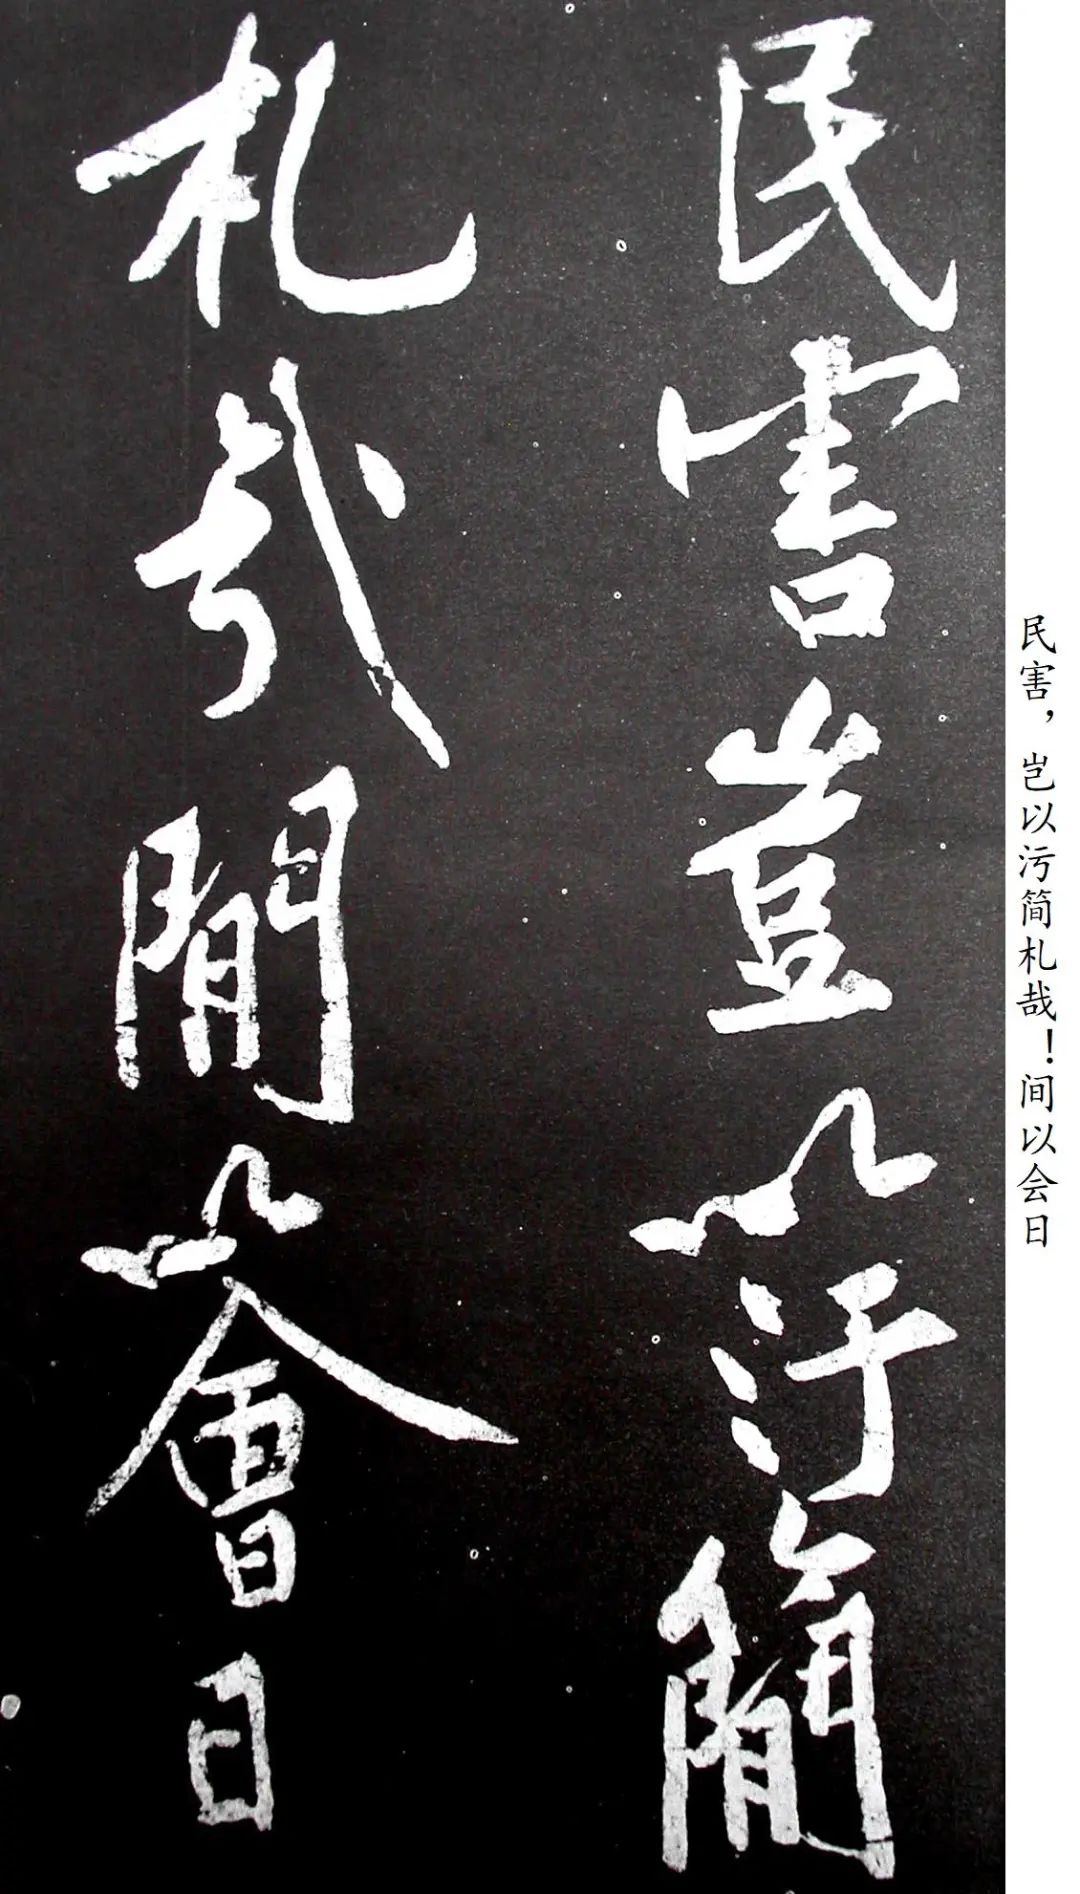 民害豈以汙簡
札哉間以會日
民害，岂以污简札哉！间以会日